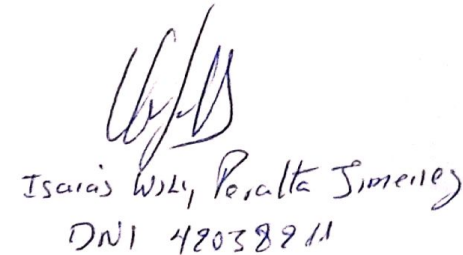 Isaias Peralta Jimenez
DNI 42038911